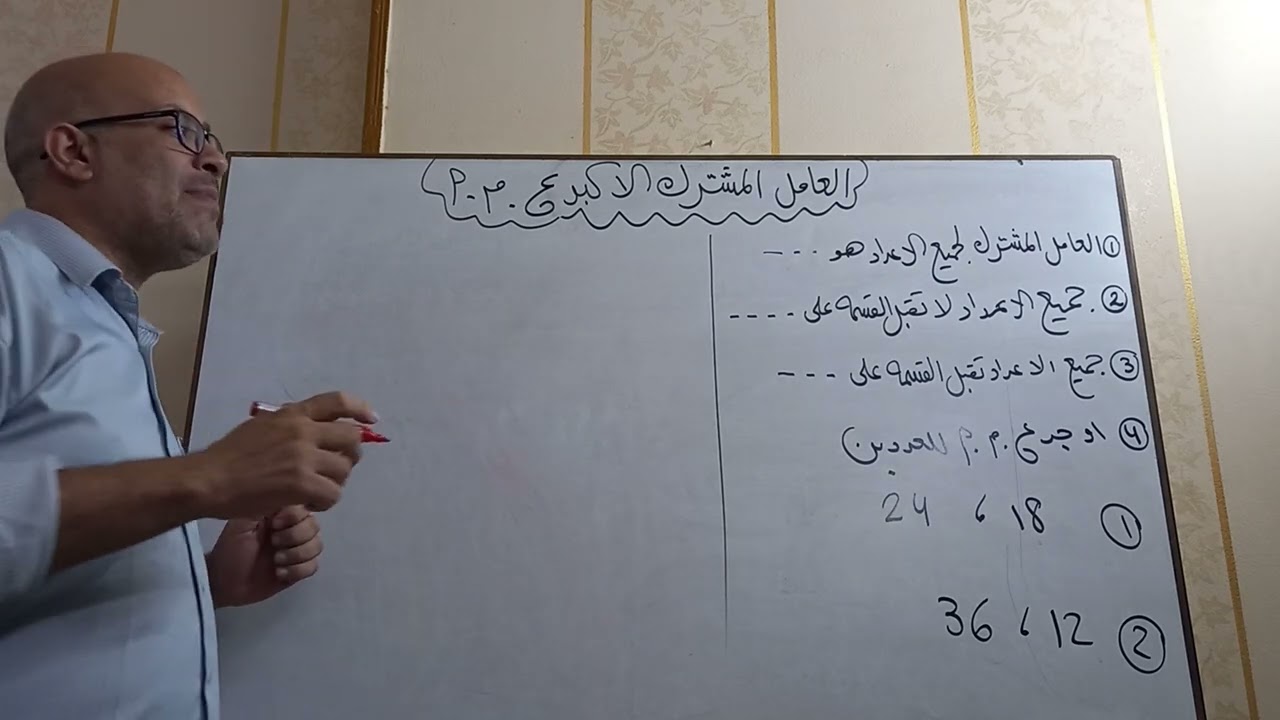 العامل المشترك الاكبر ع.م.م
① العامل المشترك لجميع الاعداد هو ---
②. جميع الاعداد لا تقبل القسمه على ----
③. جميع الاعداد تقبل القسمه على ---
④ اوجد ع.م.م للعددين
① 18 ، 24
② 12 ، 36